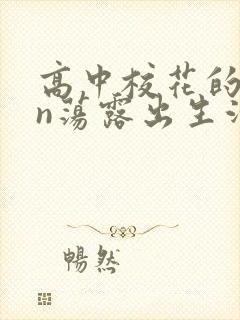 高中校花的
n荡露出生活
暢然